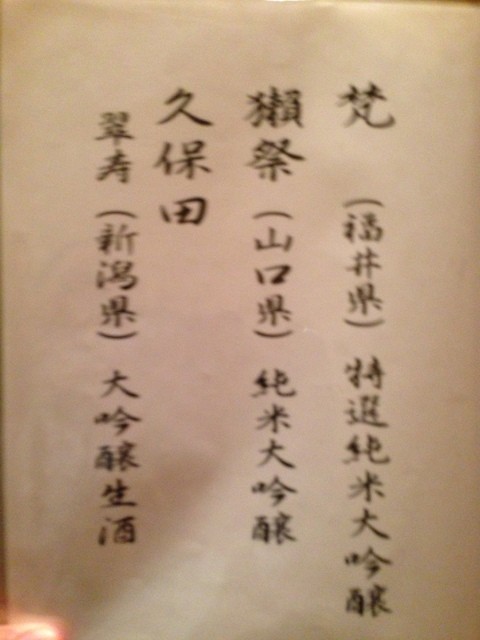 梵 (福井県) 特選純米大吟醸
獺祭 (山口県) 純米大吟醸
久保田
翠寿 (新潟県) 大吟醸生酒